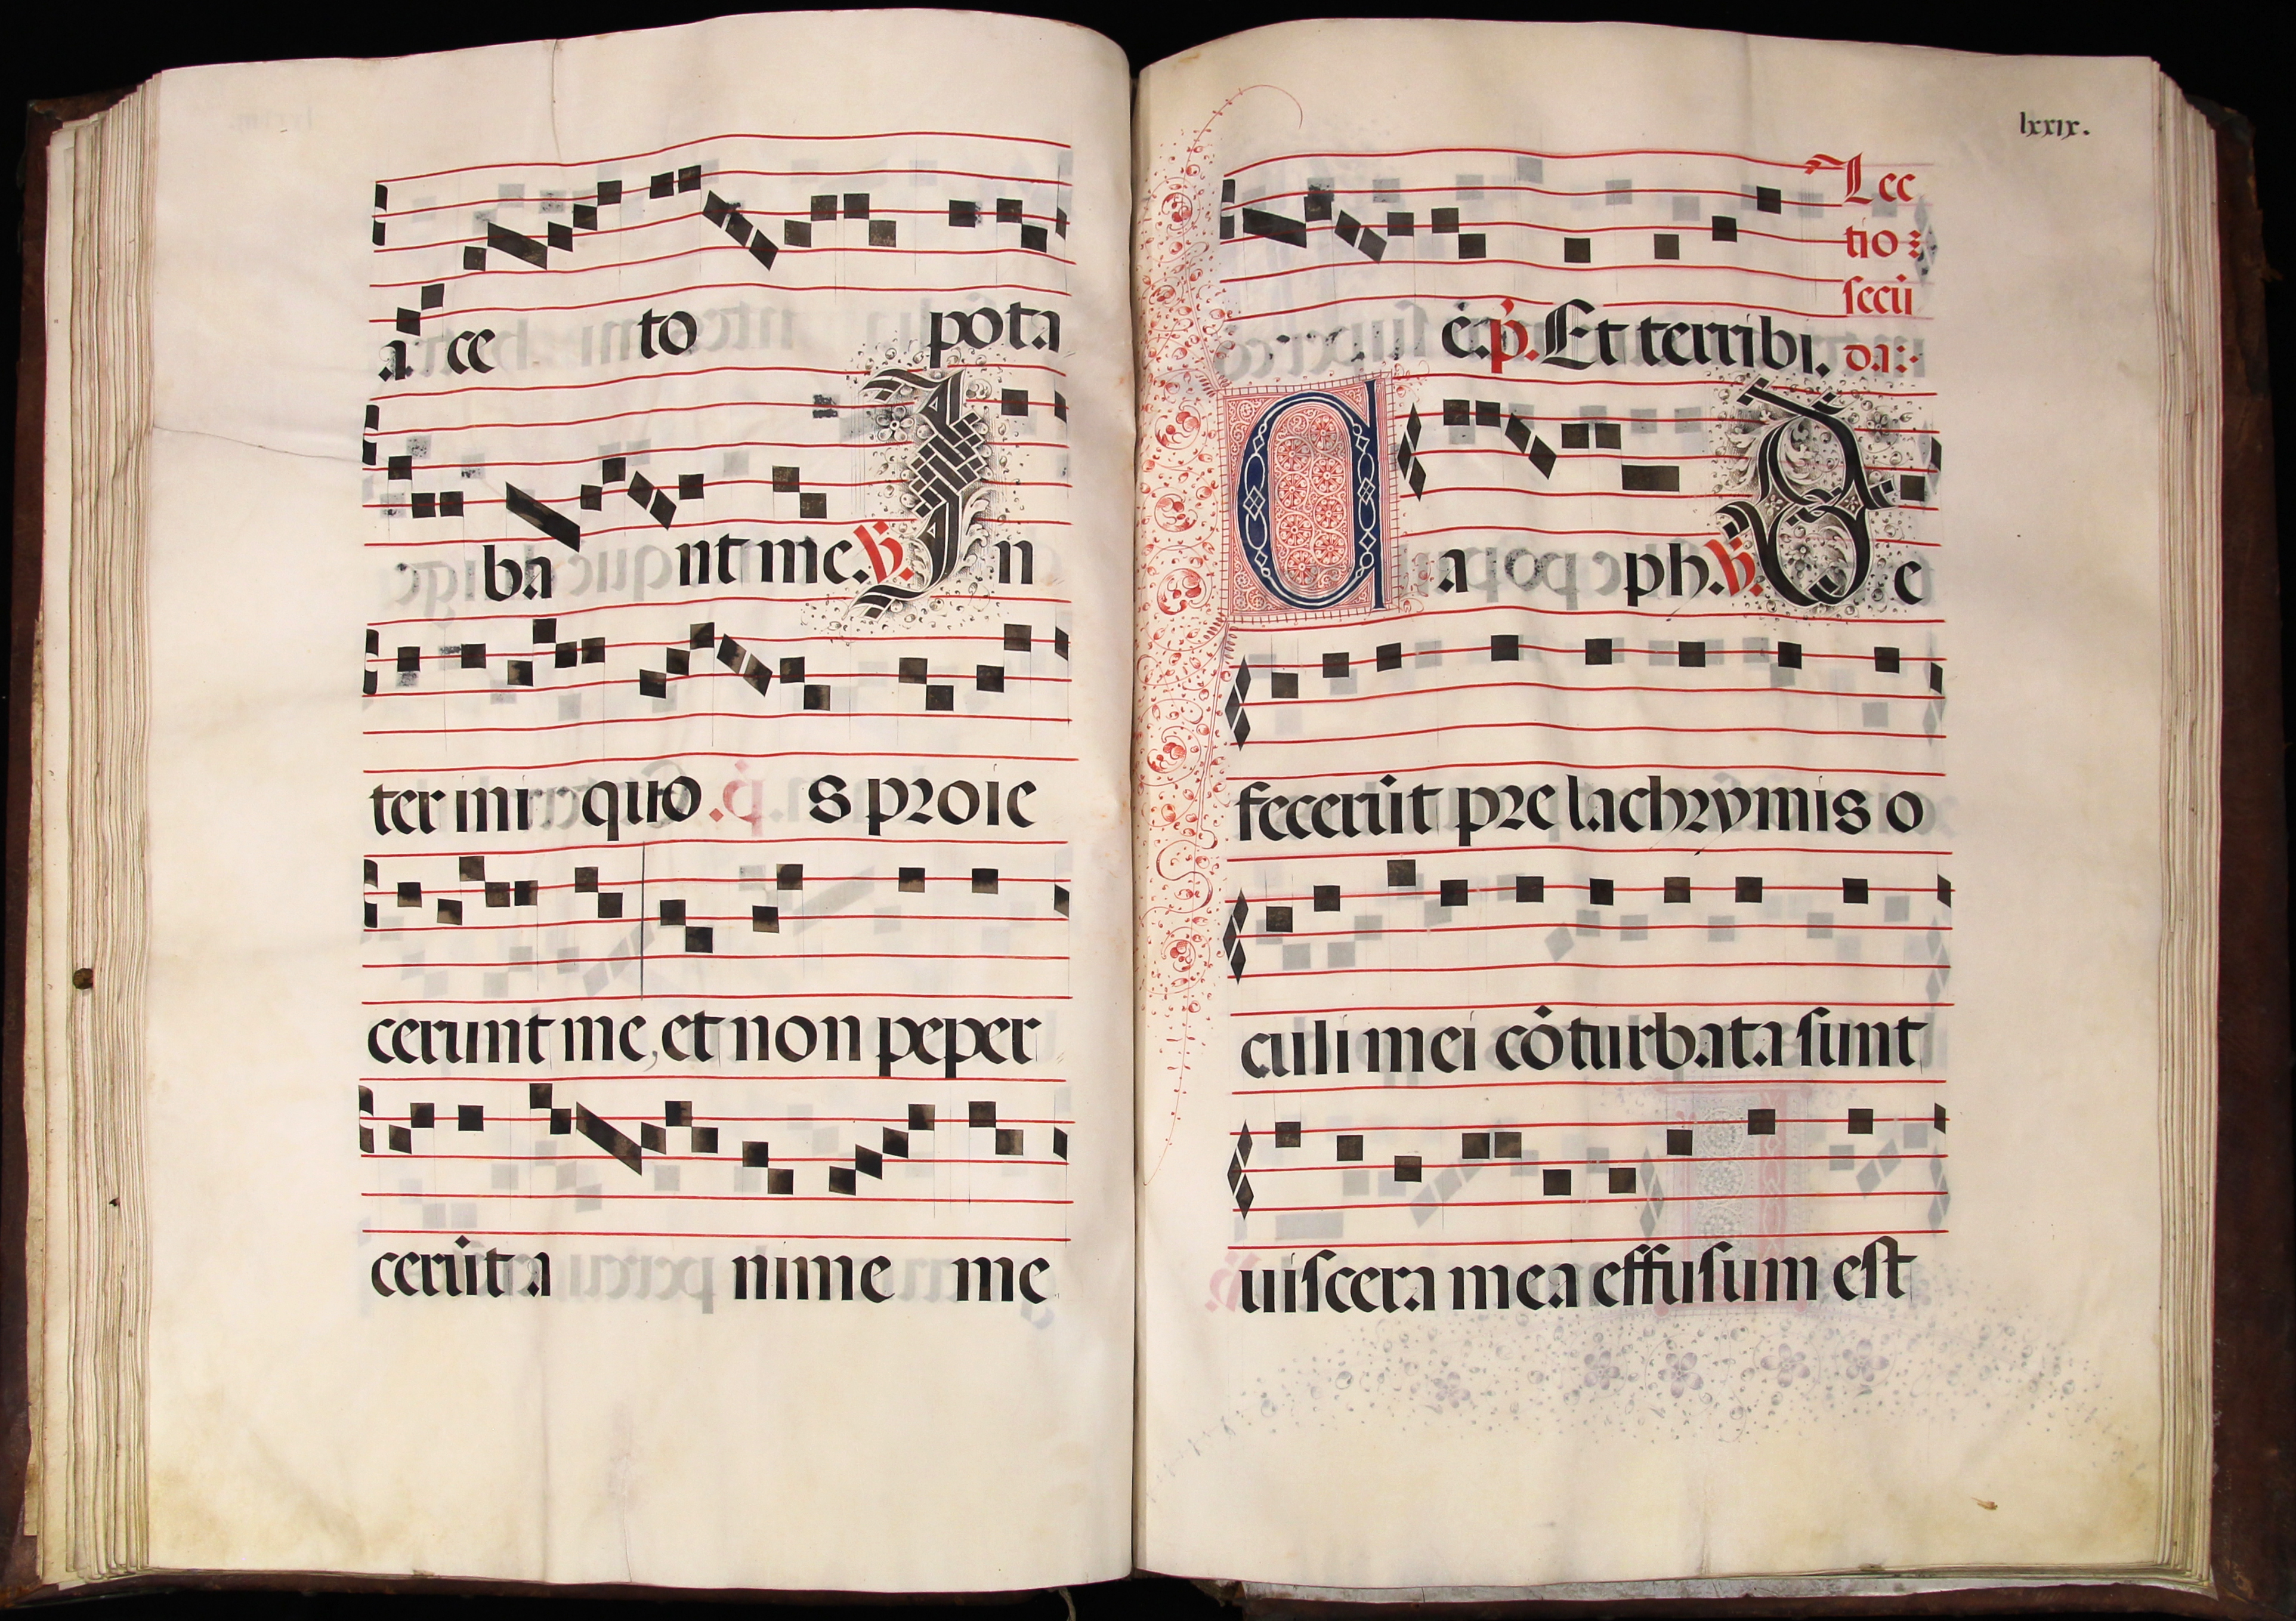 a ce to pota
ba nt me. ℣. In
ter ini quo s proie
cerunt me, et non peper
cerūt a nime me
lxxix.
ę. p̄. Et terribi.
Lec
tio
secū
da
Caph. ℣. De
fecerūt pre lachrymis o
culi mei cōturbata sunt
uiscera mea effusum est